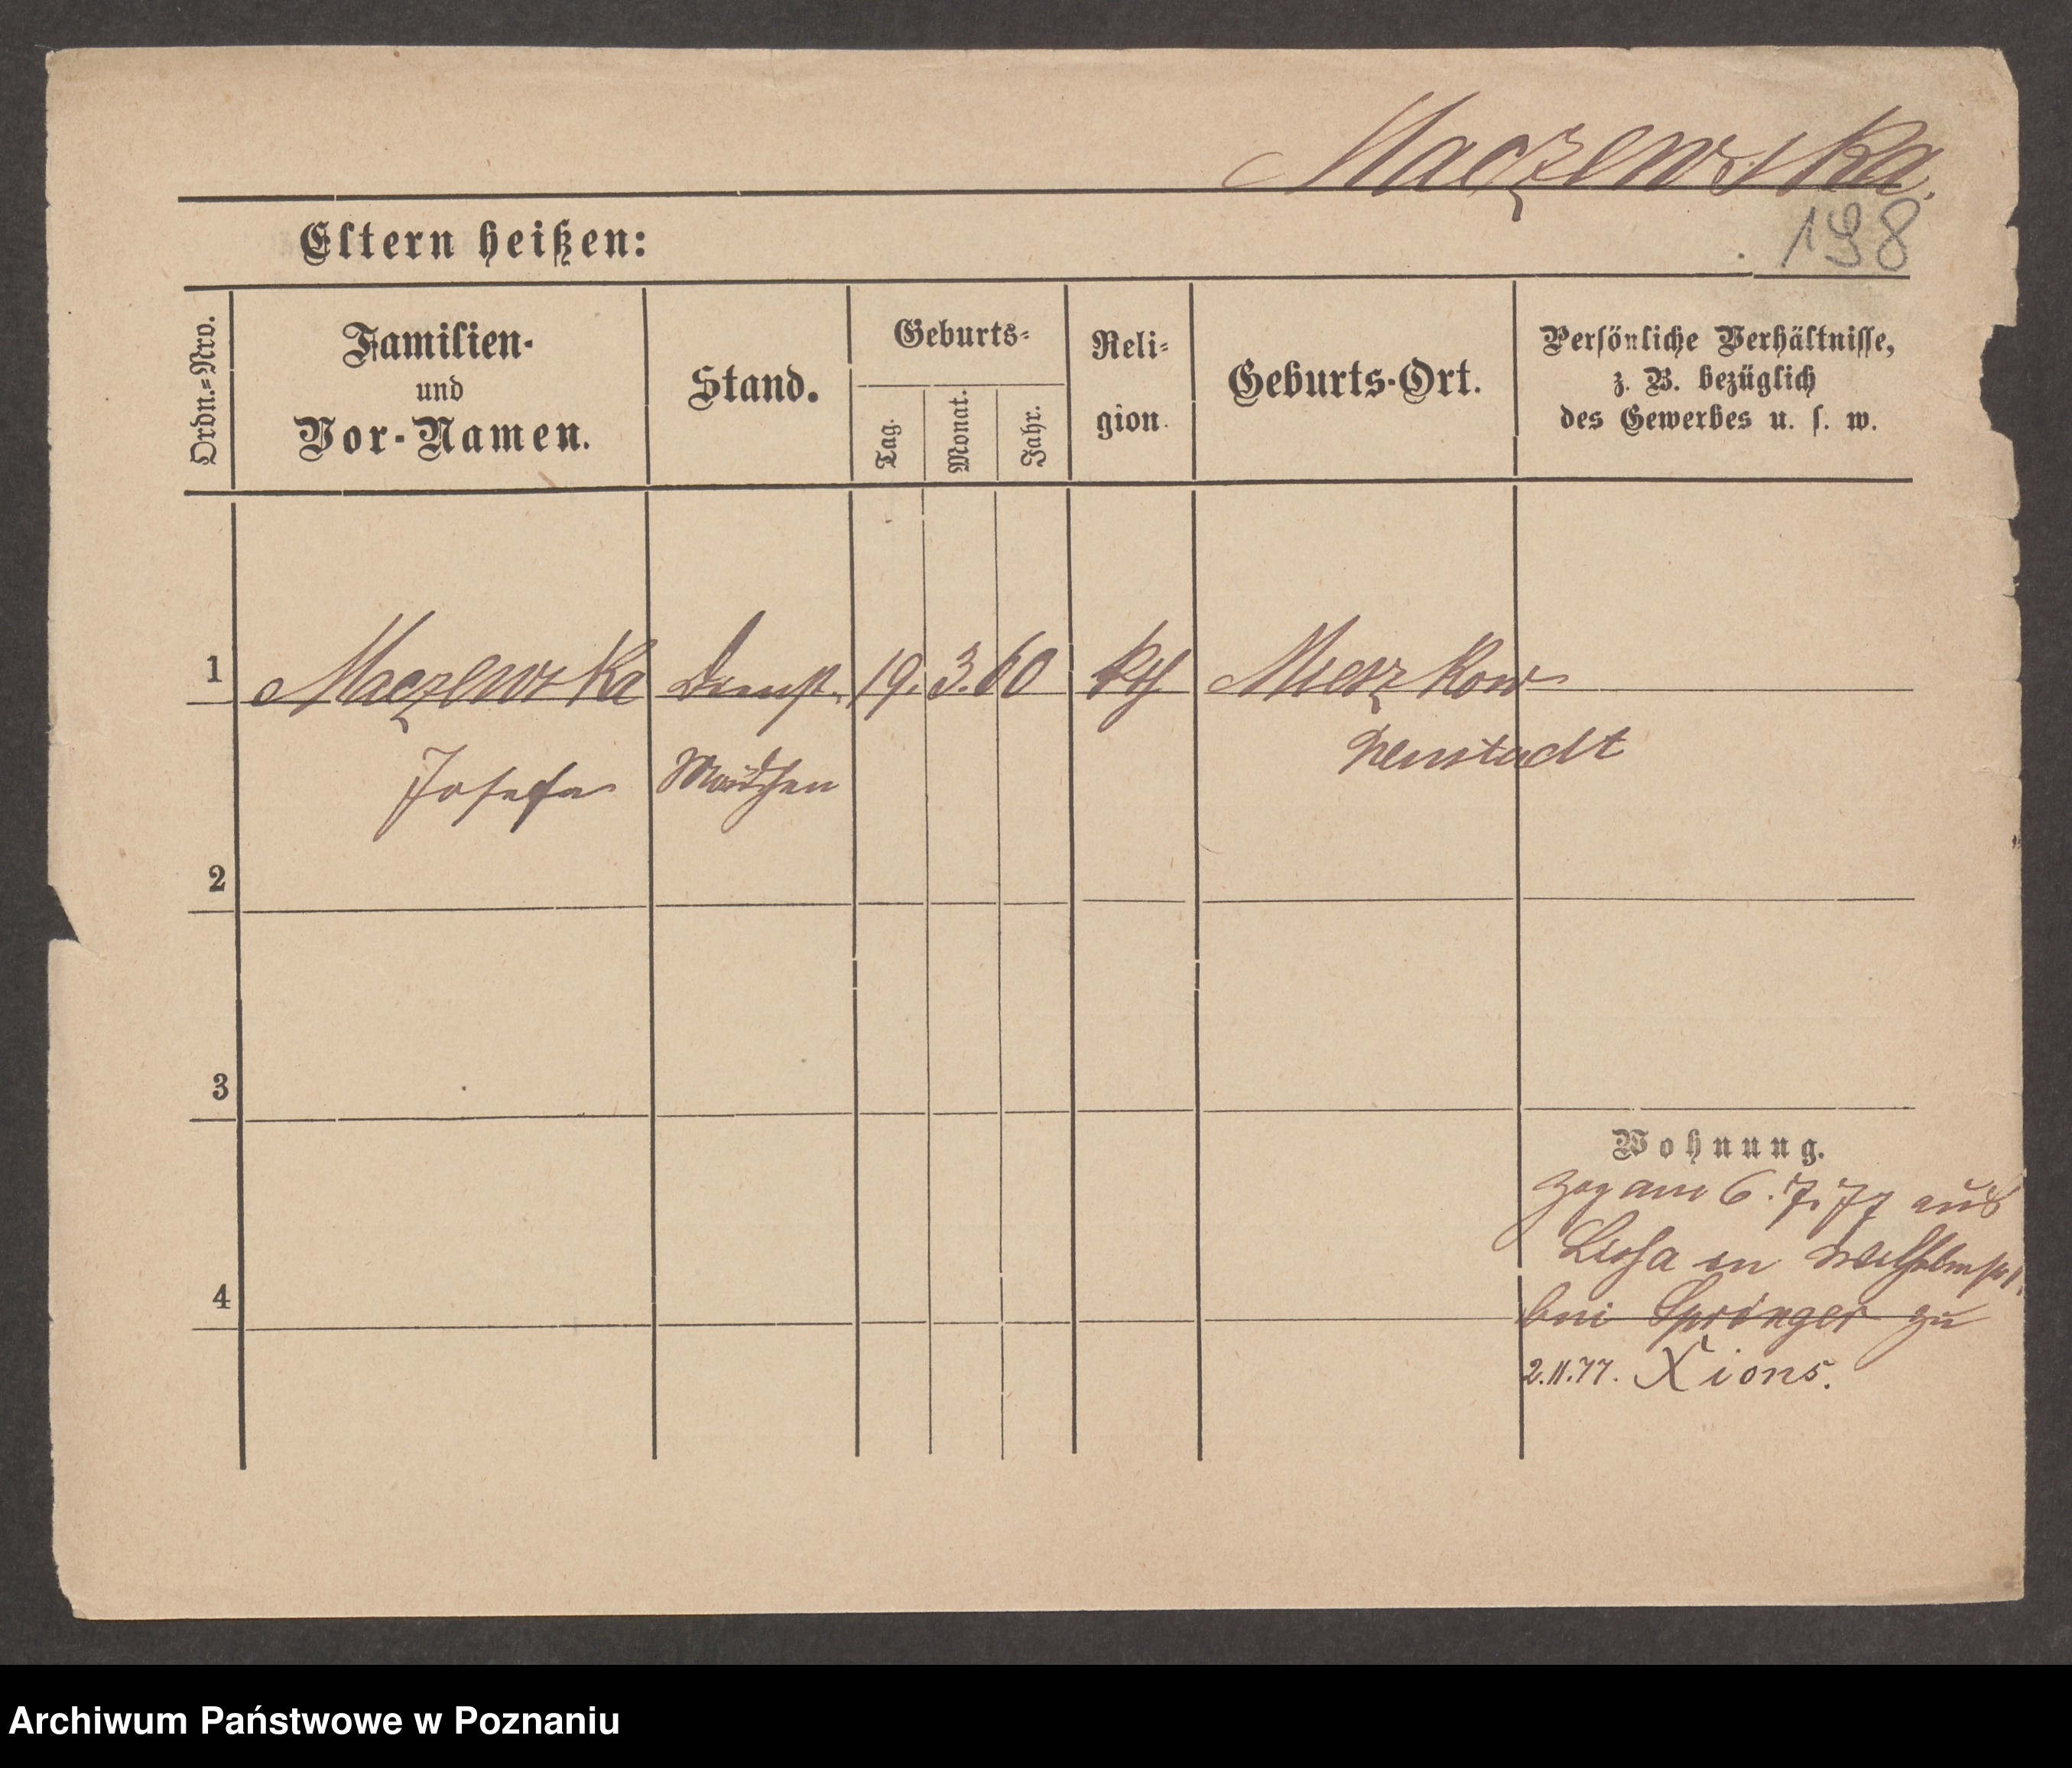 Maczewska.
198
Eltern heißen:
Ordn.=Nro.
Familien-
und
Vor-Namen.
Stand.
Geburts-
Tag.
Monat.
Jahr.
Reli-
gion.
Geburts-Ort.
Persönliche Verhältnisse,
z. B. bezüglich
des Gewerbes u. s. w.
1 Maczewska Dienst- 19. 3. 60 kth Mieszkow
Josefa Mädchen Neustadt
2
3
Wohnung.
zog am 6. 7. 77 aus
Lissa in Wilhelmspl.
4 bei Springer zu
2.11.77. Xions.
Archiwum Państwowe w Poznaniu